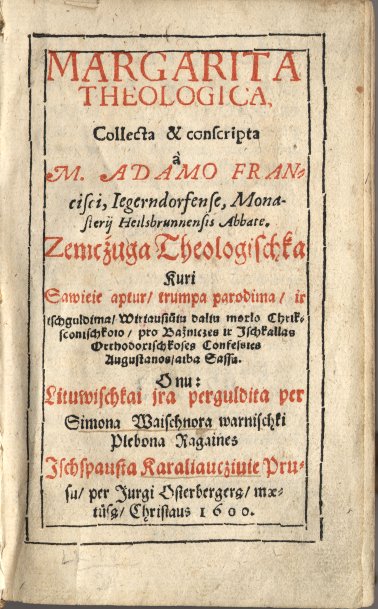 MARGARITA
THEOLOGICA,
Collecta & conscripta
à
M. ADAMO FRAN-
cisci, Iegerndorfense, Mona-
sterij Heilsbrunnensis Abbate.
Zemcžuga Theologischka
Kuri
Sawieie aptur/ trumpa parodima/ ir
ischguldima/ Wiriausiuiu daliu mokslo Chrik-
sconischkoio/ pro Bažniczes ir Ischkallas
Orthodorischkoses Confessies
Augustanos/ alba Sassu.
O nu:
Lituwischkai jra perguldita per
Simona Waischnora warnischki
Plebona Ragaines
Ischspausta Karaliaucziuie Pru-
su/ per Jurgi Osterbergerg/ mæ-
tüsg/ Christaus 1600.